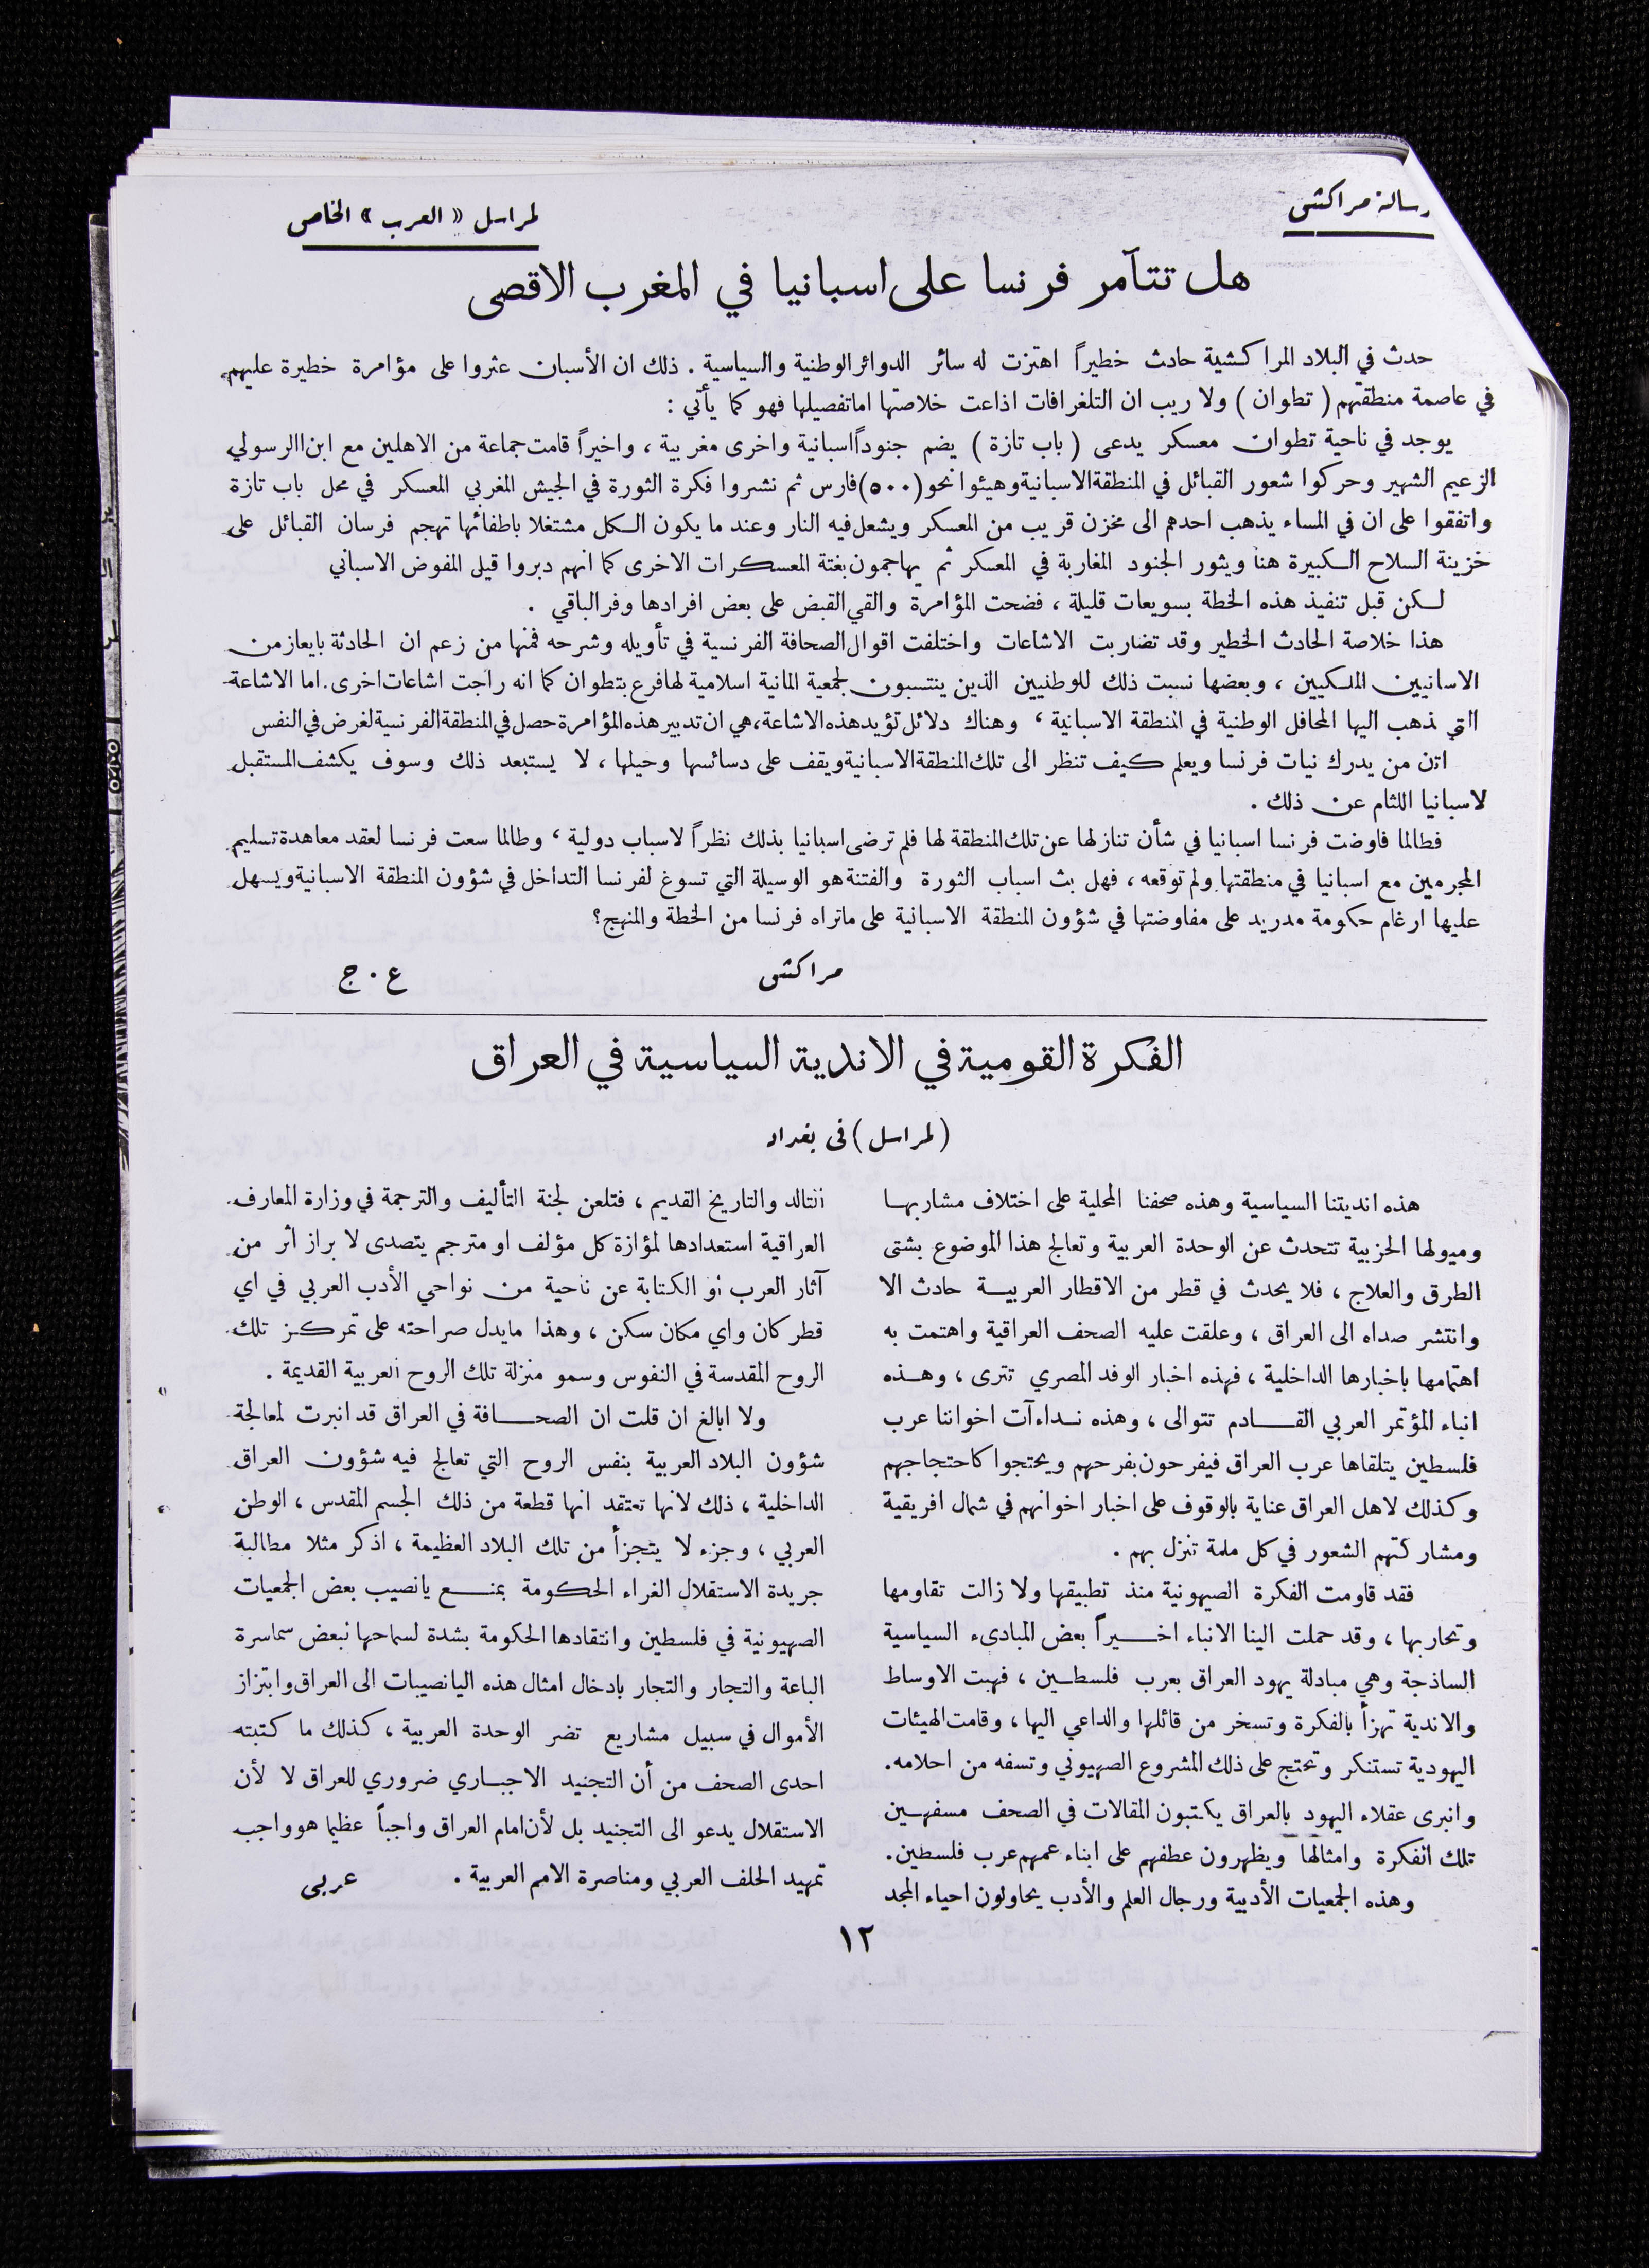 رسالة مراكش
لمراسل «العرب» الخاص
هل تتآمر فرنسا على اسبانيا في المغرب الاقصى
حدث في البلاد المراكشية حادث خطيراً اهتزت له سائر الدوائر الوطنية والسياسية . ذلك ان الأسبان عثروا على مؤامرة خطيرة عليهم
في عاصمة منطقتهم ( تطوان ) ولا ريب ان التلغرافات اذاعت خلاصتها اما تفصيلها فهو كما يأتي :
يوجد في ناحية تطوان معسكر يدعى ( باب تازة ) يضم جنوداً اسبانية واخرى مغربية ، واخيراً قامت جماعة من الاهلين مع ابن الرسولي
الزعيم الشهير وحركوا شعور القبائل في المنطقة الاسبانية وهيئوا نحو (٥٠٠) فارس ثم نشروا فكرة الثورة في الجيش المغربي المعسكر في محل باب تازة
واتفقوا على ان في المساء يذهب احدهم الى مخزن قريب من المعسكر ويشعل فيه النار وعند ما يكون الكل مشتغلا باطفائها تهجم فرسان القبائل على
خزينة السلاح الكبيرة هنا ويثور الجنود المغاربة في المعسكر ثم يهاجمون بغتة المعسكرات الاخرى كما انهم دبروا قيل المفوض الاسباني
لكن قبل تنفيذ هذه الخطة بسويعات قليلة ، فضحت المؤامرة والقي القبض على بعض افرادها وفر الباقي .
هذا خلاصة الحادث الخطير وقد تضاربت الاشاعات واختلفت اقوال الصحافة الفرنسية في تأويله وشرحه فمنها من زعم ان الحادثة بايعاز من
الاسانيين الملكيين ، وبعضها نسبت ذلك للوطنيين الذين ينتسبون لجمعية المانية اسلامية لها فرع بتطوان كما انه راجت اشاعات اخرى . اما الاشاعة
التي نذهب اليها المحافل الوطنية في المنطقة الاسبانية ، وهناك دلائل تؤيد هذه الاشاعة ، هي ان تدبير هذه المؤامرة حصل في المنطقة الفرنسية لغرض في النفس
اتن من يدرك نيات فرنسا ويعلم كيف تنظر الى تلك المنطقة الاسبانية ويقف على دسائسها وحيلها ، لا يستبعد ذلك وسوف يكشف المستقبل
لاسبانيا اللثام عن ذلك .
فطالما فاوضت فرنسا اسبانيا في شأن تنازلها عن تلك المنطقة لها فلم ترضى اسبانيا بذلك نظراً لاسباب دولية ، وطالما سعت فرنسا لعقد معاهدة تسليم
المجرمين مع اسبانيا في منطقتها ولم توقعه ، فهل بث اسباب الثورة والفتنة هو الوسيلة التي تسوغ لفرنسا التداخل في شؤون المنطقة الاسبانية ويسهل
عليها ارغام حكومة مدريد على مفاوضتها في شؤون المنطقة الاسبانية على ماتراه فرنسا من الخطة والمنهج؟
مراكش
ع . ج
الفكرة القومية في الاندية السياسية في العراق
(لمراسل) في بغداد
هذه انديتنا السياسية وهذه صحفنا المحلية على اختلاف مشاربها
وميولها الحزبية تتحدث عن الوحدة العربية وتعالج هذا الموضوع بشتى
الطرق والعلاج ، فلا يحدث في قطر من الاقطار العربية حادث الا
وانتشر صداه الى العراق ، وعلقت عليه الصحف العراقية واهتمت به
اهتمامها باخبارها الداخلية ، فهذه اخبار الوفد المصري تترى ، وهذه
انباء المؤتمر العربي القادم تتوالى ، وهذه نداءآت اخواننا عرب
فلسطين يتلقاها عرب العراق فيفرحون بفرحهم ويحتجوا كاحتجاجهم
وكذلك لاهل العراق عناية بالوقوف على اخبار اخوانهم في شمال افريقية
ومشاركتهم الشعور في كل ملمة تنزل بهم .
فقد قاومت الفكرة الصهيونية منذ تطبيقها ولا زالت تقاومها
وتحاربها ، وقد حملت الينا الانباء اخيراً بعض المبادىء السياسية
الساذجة وهي مبادلة يهود العراق بعرب فلسطين ، فهبت الاوساط
والاندية تهزأ بالفكرة وتسخر من قائلها والداعي اليها ، وقامت الهيئات
اليهودية تستنكر وتحتج على ذلك المشروع الصهيوني وتسفه من احلامه .
وانبرى عقلاء اليهود بالعراق يكتبون المقالات في الصحف مسفهين
تلك الفكرة وامثالها ويظهرون عطفهم على ابناء عمهم عرب فلسطين .
وهذه الجمعيات الأدبية ورجال العلم والأدب يحاولون احياء المجد
التالد والتاريخ القديم ، فتلعن لجنة التأليف والترجمة في وزارة المعارف
العراقية استعدادها لمؤازة كل مؤلف او مترجم يتصدى لا براز أثر من
آثار العرب او الكتابة عن ناحية من نواحي الأدب العربي في اي
قطر كان واي مكان سكن ، وهذا مايدل صراحته على تمركز تلك
الروح المقدسة في النفوس وسمو منزلة تلك الروح العربية القديمة .
ولا ابالغ ان قلت ان الصحافة في العراق قد انبرت لمعالجة
شؤون البلاد العربية بنفس الروح التي تعالج فيه شؤون العراق
الداخلية ، ذلك لانها تعتقد انها قطعة من ذلك الجسم المقدس ، الوطن
العربي ، وجزء لا يتجزأ من تلك البلاد العظيمة ، اذكر مثلا مطالبة
جريدة الاستقلال الغراء الحكومة بمنع يانصيب بعض الجمعيات
الصهيونية في فلسطين وانتقادها الحكومة بشدة لسماحها لبعض سماسرة
الباعة والتجار والتجار بادخال امثال هذه اليانصيبات الى العراق وابتزاز
الأموال في سبيل مشاريع تضر الوحدة العربية ، كذلك ما كتبته
احدى الصحف من أن التجنيد الاجباري ضروري للعراق لا لأن
الاستقلال يدعو الى التجنيد بل لأن امام العراق واجباً عظيما هو واجب
تمهيد الحلف العربي ومناصرة الامم العربية .
عربي
١٢